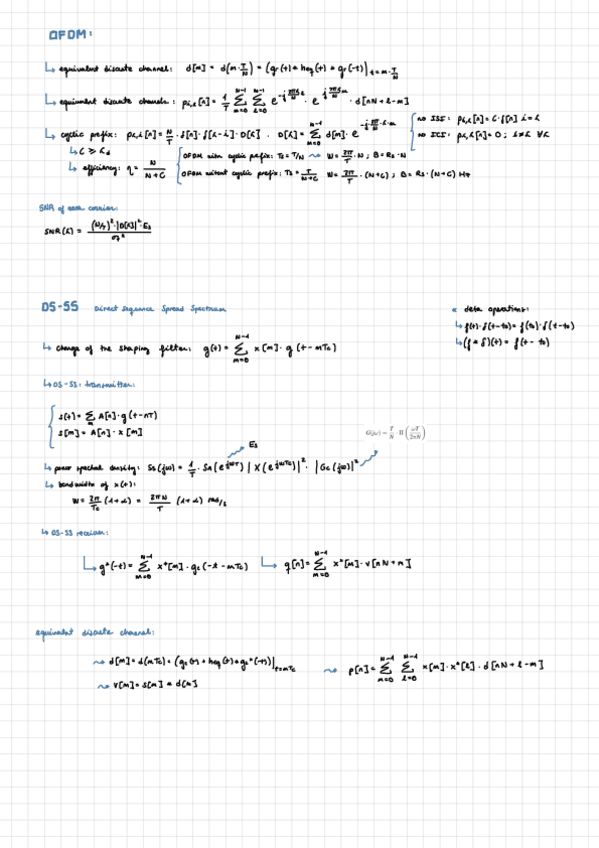 OFDM:
↳ equivalent discrete channel: d[m] = d(m·T/N) = (gc(t) * heq(t) * gc(-t))|t=m·T/N
↳ equivalent discrete channels: pk,i[n] = 1/T Σ(m=0 to N-1) Σ(l=0 to N-1) · d[nN+l-m]
↳ cyclic prefix: pk,i[n] = N/T · δ[n] · δ[k-i] · D[k] . D[k] = Σ(m=0 to N-1) d[m] · e^(-j 2π/N · k·m)
no ISI: pk,k[n] = C·δ[n]
no ICI: pk,i[n] = 0;
↳ efficiency: η = N/(N+C)
OFDM with cyclic prefix: Ts = T/N ⤳ W = 2π/T · N ; B = Rs · N
OFDM without cyclic prefix: Ts = T/(N+C) W = 2π/T · (N+C) ; B = Rs · (N+C) Hz
SNR of each carrier:
SNR(k) = (N/T)² · |D[k]|² · Es / σ²
DS-SS Direct Sequence Spread Spectrum
* delta operations:
↳ f(t) · δ(t-t0) = f(t0) · δ(t-t0)
↳ (f * δ)(t) = f(t-t0)
↳ change of the shaping filter: g(t) = Σ(m=0 to N-1) x[m] · g(t-mTc)
↳ DS-SS: transmitter:
s(t) = Σ A[n] · g(t-nT)
s[m] = A[n] · x[m]
G(jω) = T/N · Π(ωT/2πN)
Es
↳ power spectral density: Ss(jω) = 1/T · SA(e^jωT) |X(e^jωTc)|² · |Gc(jω)|²
↳ bandwidth of x(t):
W = 2π/Tc (1+α) = 2πN/T (1+α) rad/s
↳ DS-SS receiver:
↳ g*(-t) = Σ(m=0 to N-1) x*[m] · gc(-t-mTc) ↳ q[n] = Σ(m=0 to N-1) x*[m] · v[nN+m]
equivalent discrete channel:
⤳ d[m] = d(mTc) = (gc(t) * heq(t) * gc*(-t))|t=mTc
⤳ p[n] = Σ(m=0 to N-1) Σ(l=0 to N-1) x[m] · x*[l] · d[nN+l-m]
⤳ v[m] = s[m] * d[m]